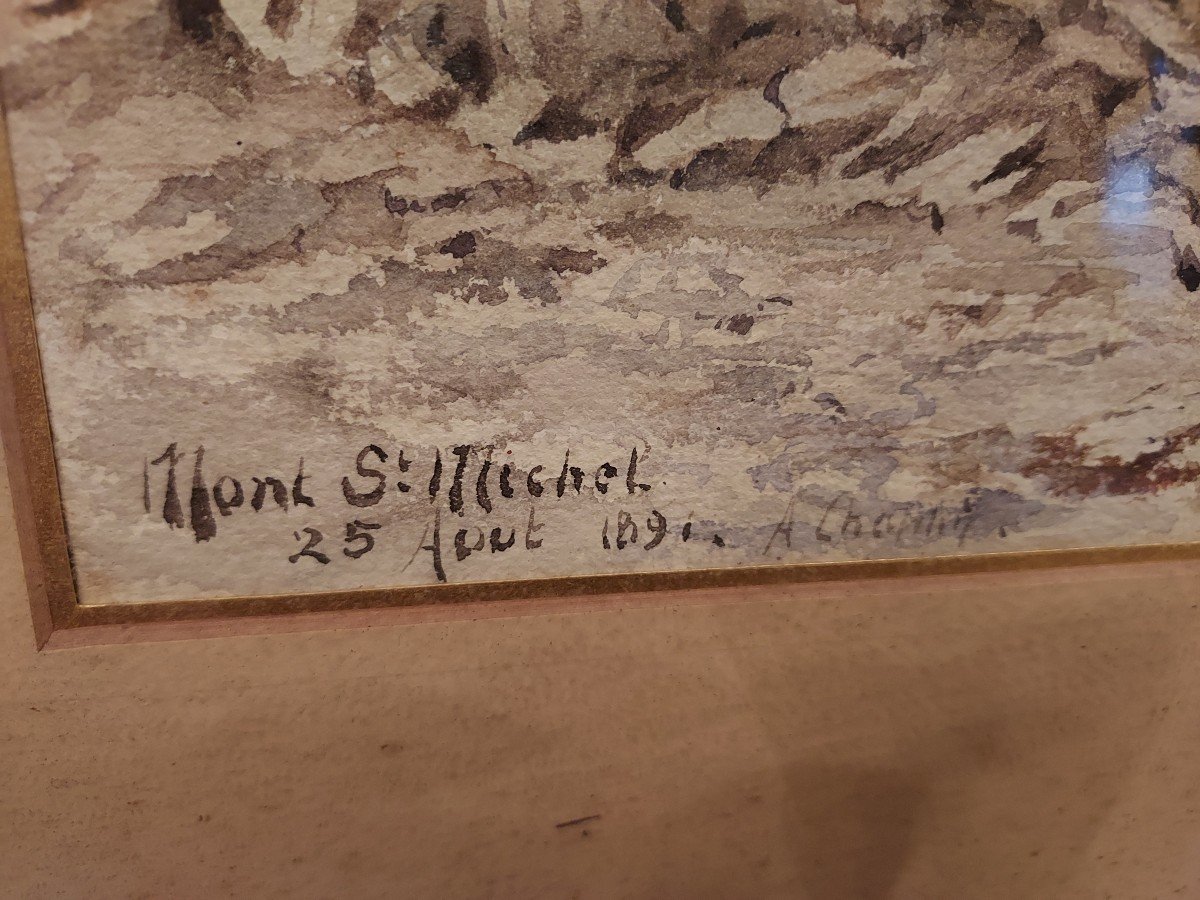 Mont St Michel
25 Aout 1891. A